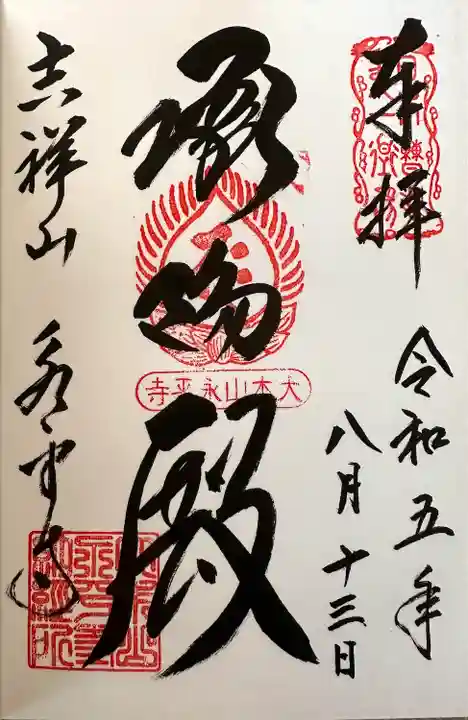 奉拝
令和五年
八月十三日
承陽殿
大本山永平寺
吉祥山 永平寺